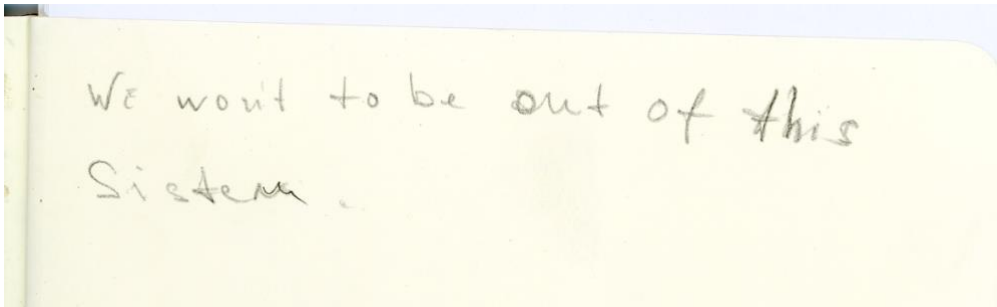 We won't to be out of this
Sistem.